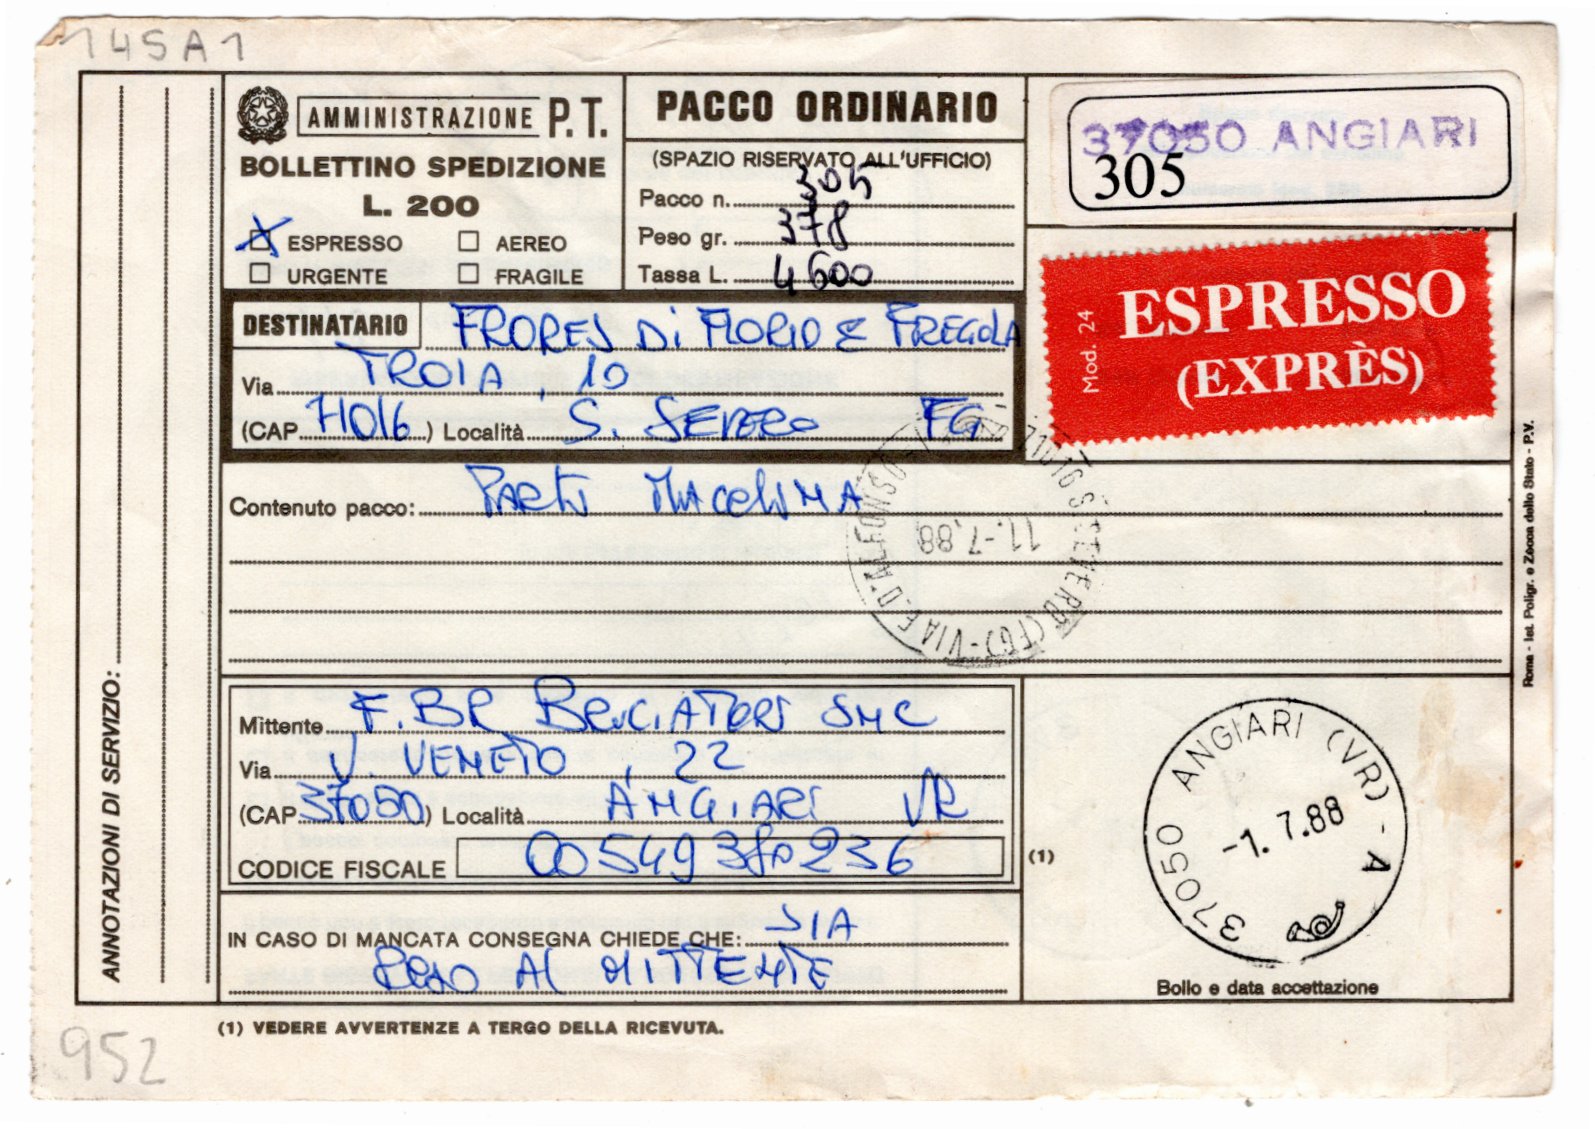 145A1
AMMINISTRAZIONE P.T.
BOLLETTINO SPEDIZIONE
L. 200
ESPRESSO AEREO
URGENTE FRAGILE
PACCO ORDINARIO
(SPAZIO RISERVATO ALL'UFFICIO)
Pacco n. 305
Peso gr. 378
Tassa L. 4600
37050 ANGIARI
305
Mod. 24
ESPRESSO
(EXPRÈS)
DESTINATARIO FRORES Di FLORIO E FREGOLA
Via TROIA, 10
(CAP 71016) Località S. SEVERO FG
Contenuto pacco: PARTI MACCHINA
71016 S. SEVERO (FG) - VIA E. D'ALFONSO
11.-7.88
Mittente F.BR BRUCIATORI SNC
Via V. VENETO, 22
(CAP 37050) Località ANGIARI VR
CODICE FISCALE 00549380236
(1)
37050 ANGIARI (VR) - A
-1. 7.88
IN CASO DI MANCATA CONSEGNA CHIEDE CHE: SIA
RESO AL MITTENTE
Bollo e data accettazione
(1) VEDERE AVVERTENZE A TERGO DELLA RICEVUTA.
ANNOTAZIONI DI SERVIZIO:
Roma - Ist. Poligr. e Zecca dello Stato - P.V.
952